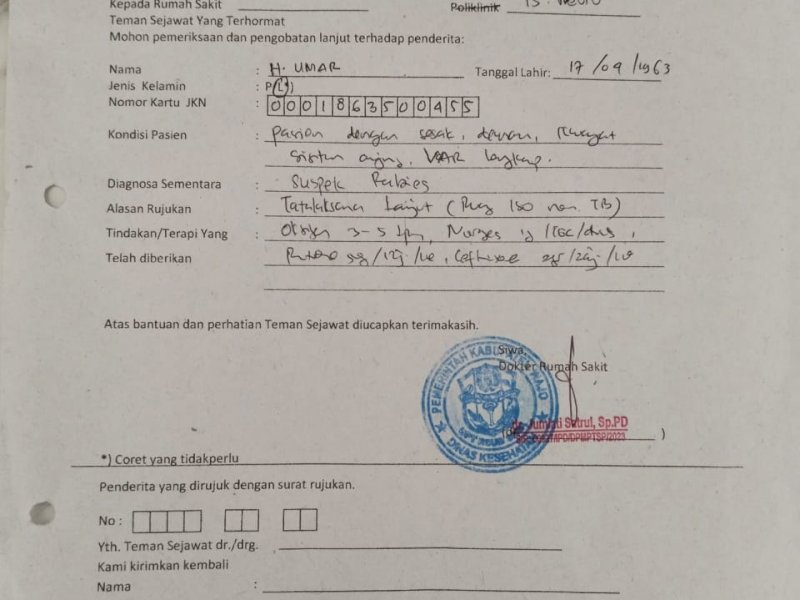 Kepada Rumah Sakit
Poliklinik : TS. Neuro
Teman Sejawat Yang Terhormat
Mohon pemeriksaan dan pengobatan lanjut terhadap penderita:
Nama : H. UMAR Tanggal Lahir: 17/09/1963
Jenis Kelamin : P/L*)
Nomor Kartu JKN : 0001863500455
Kondisi Pasien : pasien dengan sesak, demam, Riwayat
anjing, VAR lengkap.
Diagnosa Sementara : Suspek Rabies
Alasan Rujukan : Tatalaksana Lanjut (Ruang ISO non TB)
Tindakan/Terapi Yang : 3-5 lpm,
Telah diberikan :
Atas bantuan dan perhatian Teman Sejawat diucapkan terimakasih.
Siwa,
Dokter Rumah Sakit
PEMERINTAH KABUPATEN WAJO
DINAS KESEHATAN
Sp.PD
*) Coret yang tidakperlu
Penderita yang dirujuk dengan surat rujukan.
No :
Yth. Teman Sejawat dr./drg.
Kami kirimkan kembali
Nama :